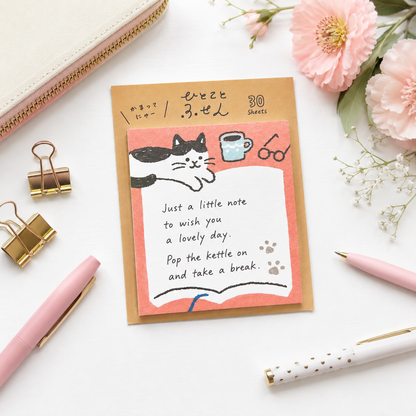 かまって
にゃー
ひとこと
ふせん
30
Sheets
Just a little note
to wish you
a lovely day.
Pop the kettle on
and take a break.